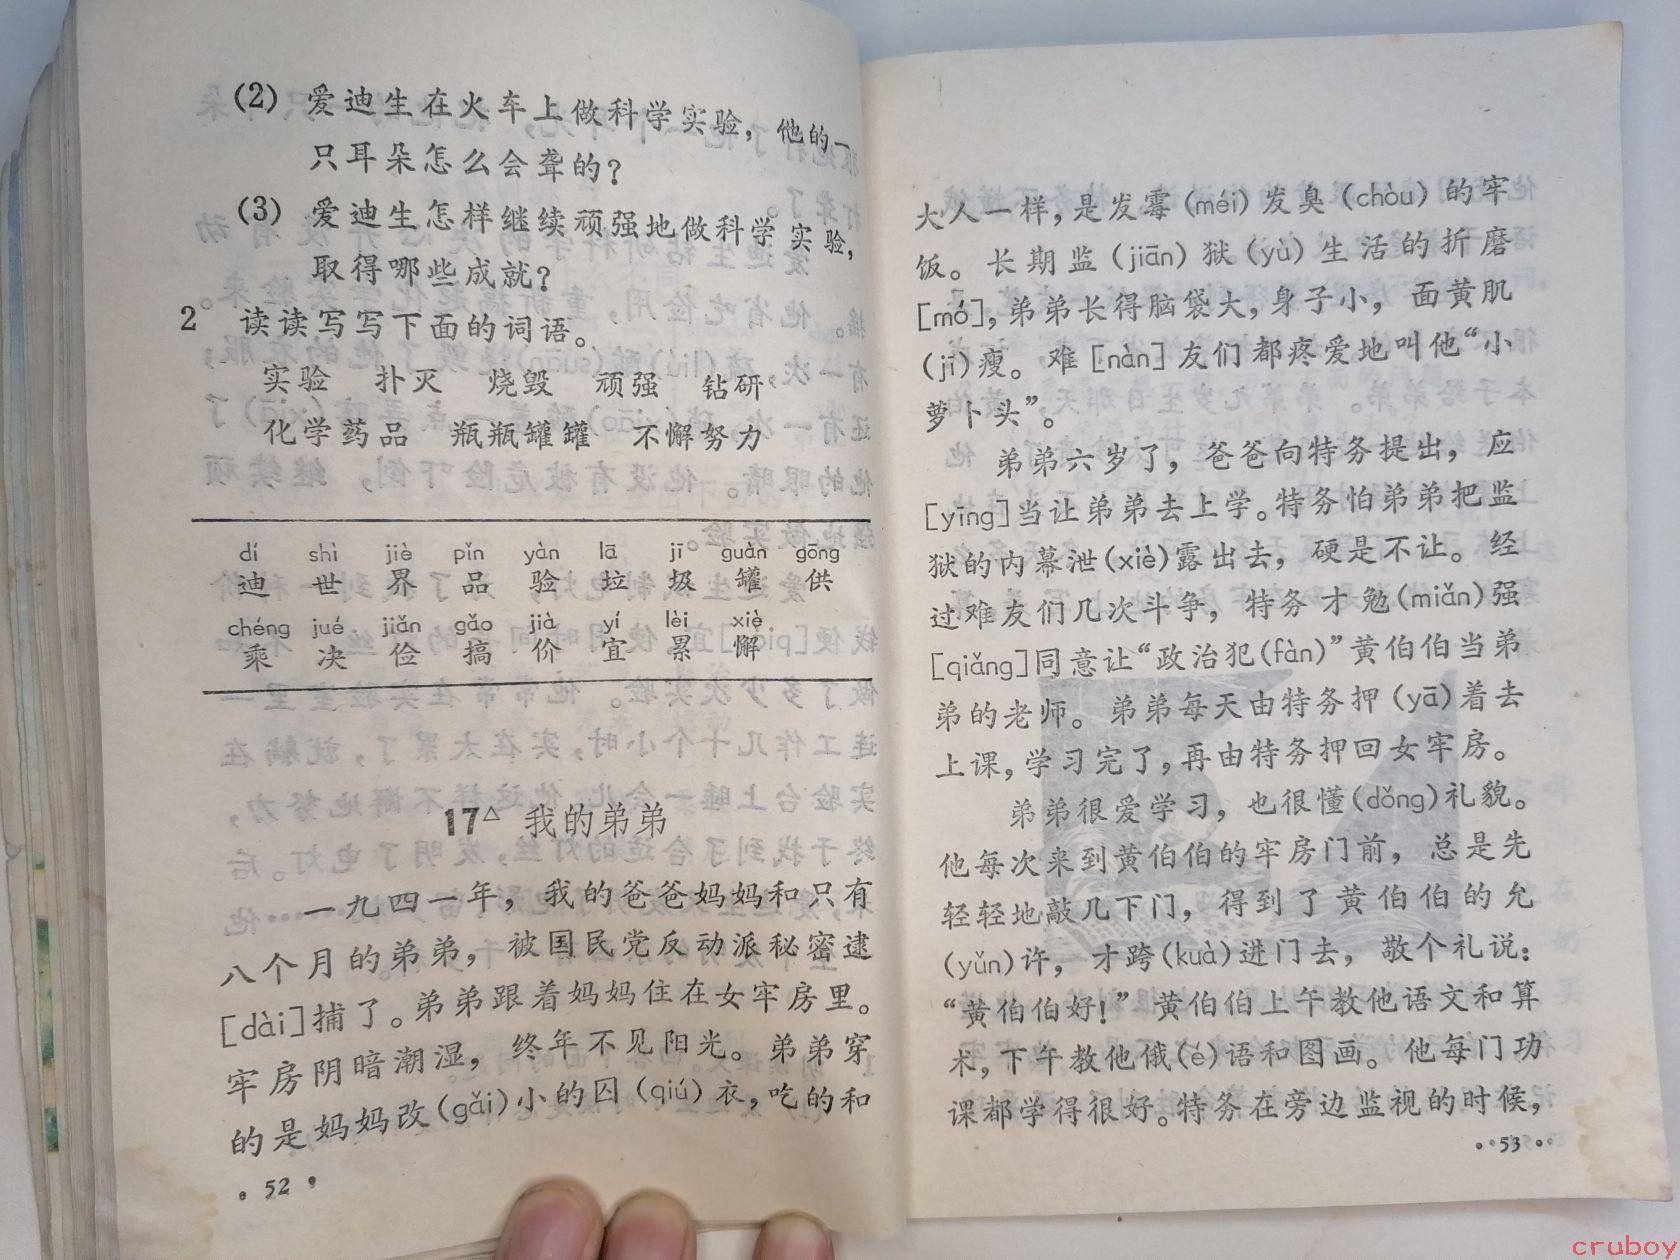 (2) 爱迪生在火车上做科学实验，他的一
只耳朵怎么会聋的？
(3) 爱迪生怎样继续顽强地做科学实验，
取得哪些成就？
2 读读写写下面的词语。
实验 扑灭 烧毁 顽强 钻研
化学药品 瓶瓶罐罐 不懈努力
dí shì jiè pǐn yàn lā jī guàn gōng
迪 世 界 品 验 垃 圾 罐 供
chéng jué jiǎn gǎo jià yí lèi xiè
乘 决 俭 搞 价 宜 累 懈
17△ 我的弟弟
一九四一年，我的爸爸妈妈和只有
八个月的弟弟，被国民党反动派秘密逮
[dài]捕了。弟弟跟着妈妈住在女牢房里。
牢房阴暗潮湿，终年不见阳光。弟弟穿
的是妈妈改(gǎi)小的囚(qiú)衣，吃的和
·52·
大人一样，是发霉(méi)发臭(chòu)的牢
饭。长期监(jiān)狱(yù)生活的折磨
[mó]，弟弟长得脑袋大，身子小，面黄肌
(jī)瘦。难[nàn]友们都疼爱地叫他“小
萝卜头”。
弟弟六岁了，爸爸向特务提出，应
[yīng]当让弟弟去上学。特务怕弟弟把监
狱的内幕泄(xiè)露出去，硬是不让。经
过难友们几次斗争，特务才勉(miǎn)强
[qiǎng]同意让“政治犯(fàn)”黄伯伯当弟
弟的老师。弟弟每天由特务押(yā)着去
上课，学习完了，再由特务押回女牢房。
弟弟很爱学习，也很懂(dǒng)礼貌。
他每次来到黄伯伯的牢房门前，总是先
轻轻地敲几下门，得到了黄伯伯的允
(yǔn)许，才跨(kuà)进门去，敬个礼说：
“黄伯伯好！”黄伯伯上午教他语文和算
术，下午教他俄(é)语和图画。他每门功
课都学得很好。特务在旁边监视的时候，
·53·
cruboy